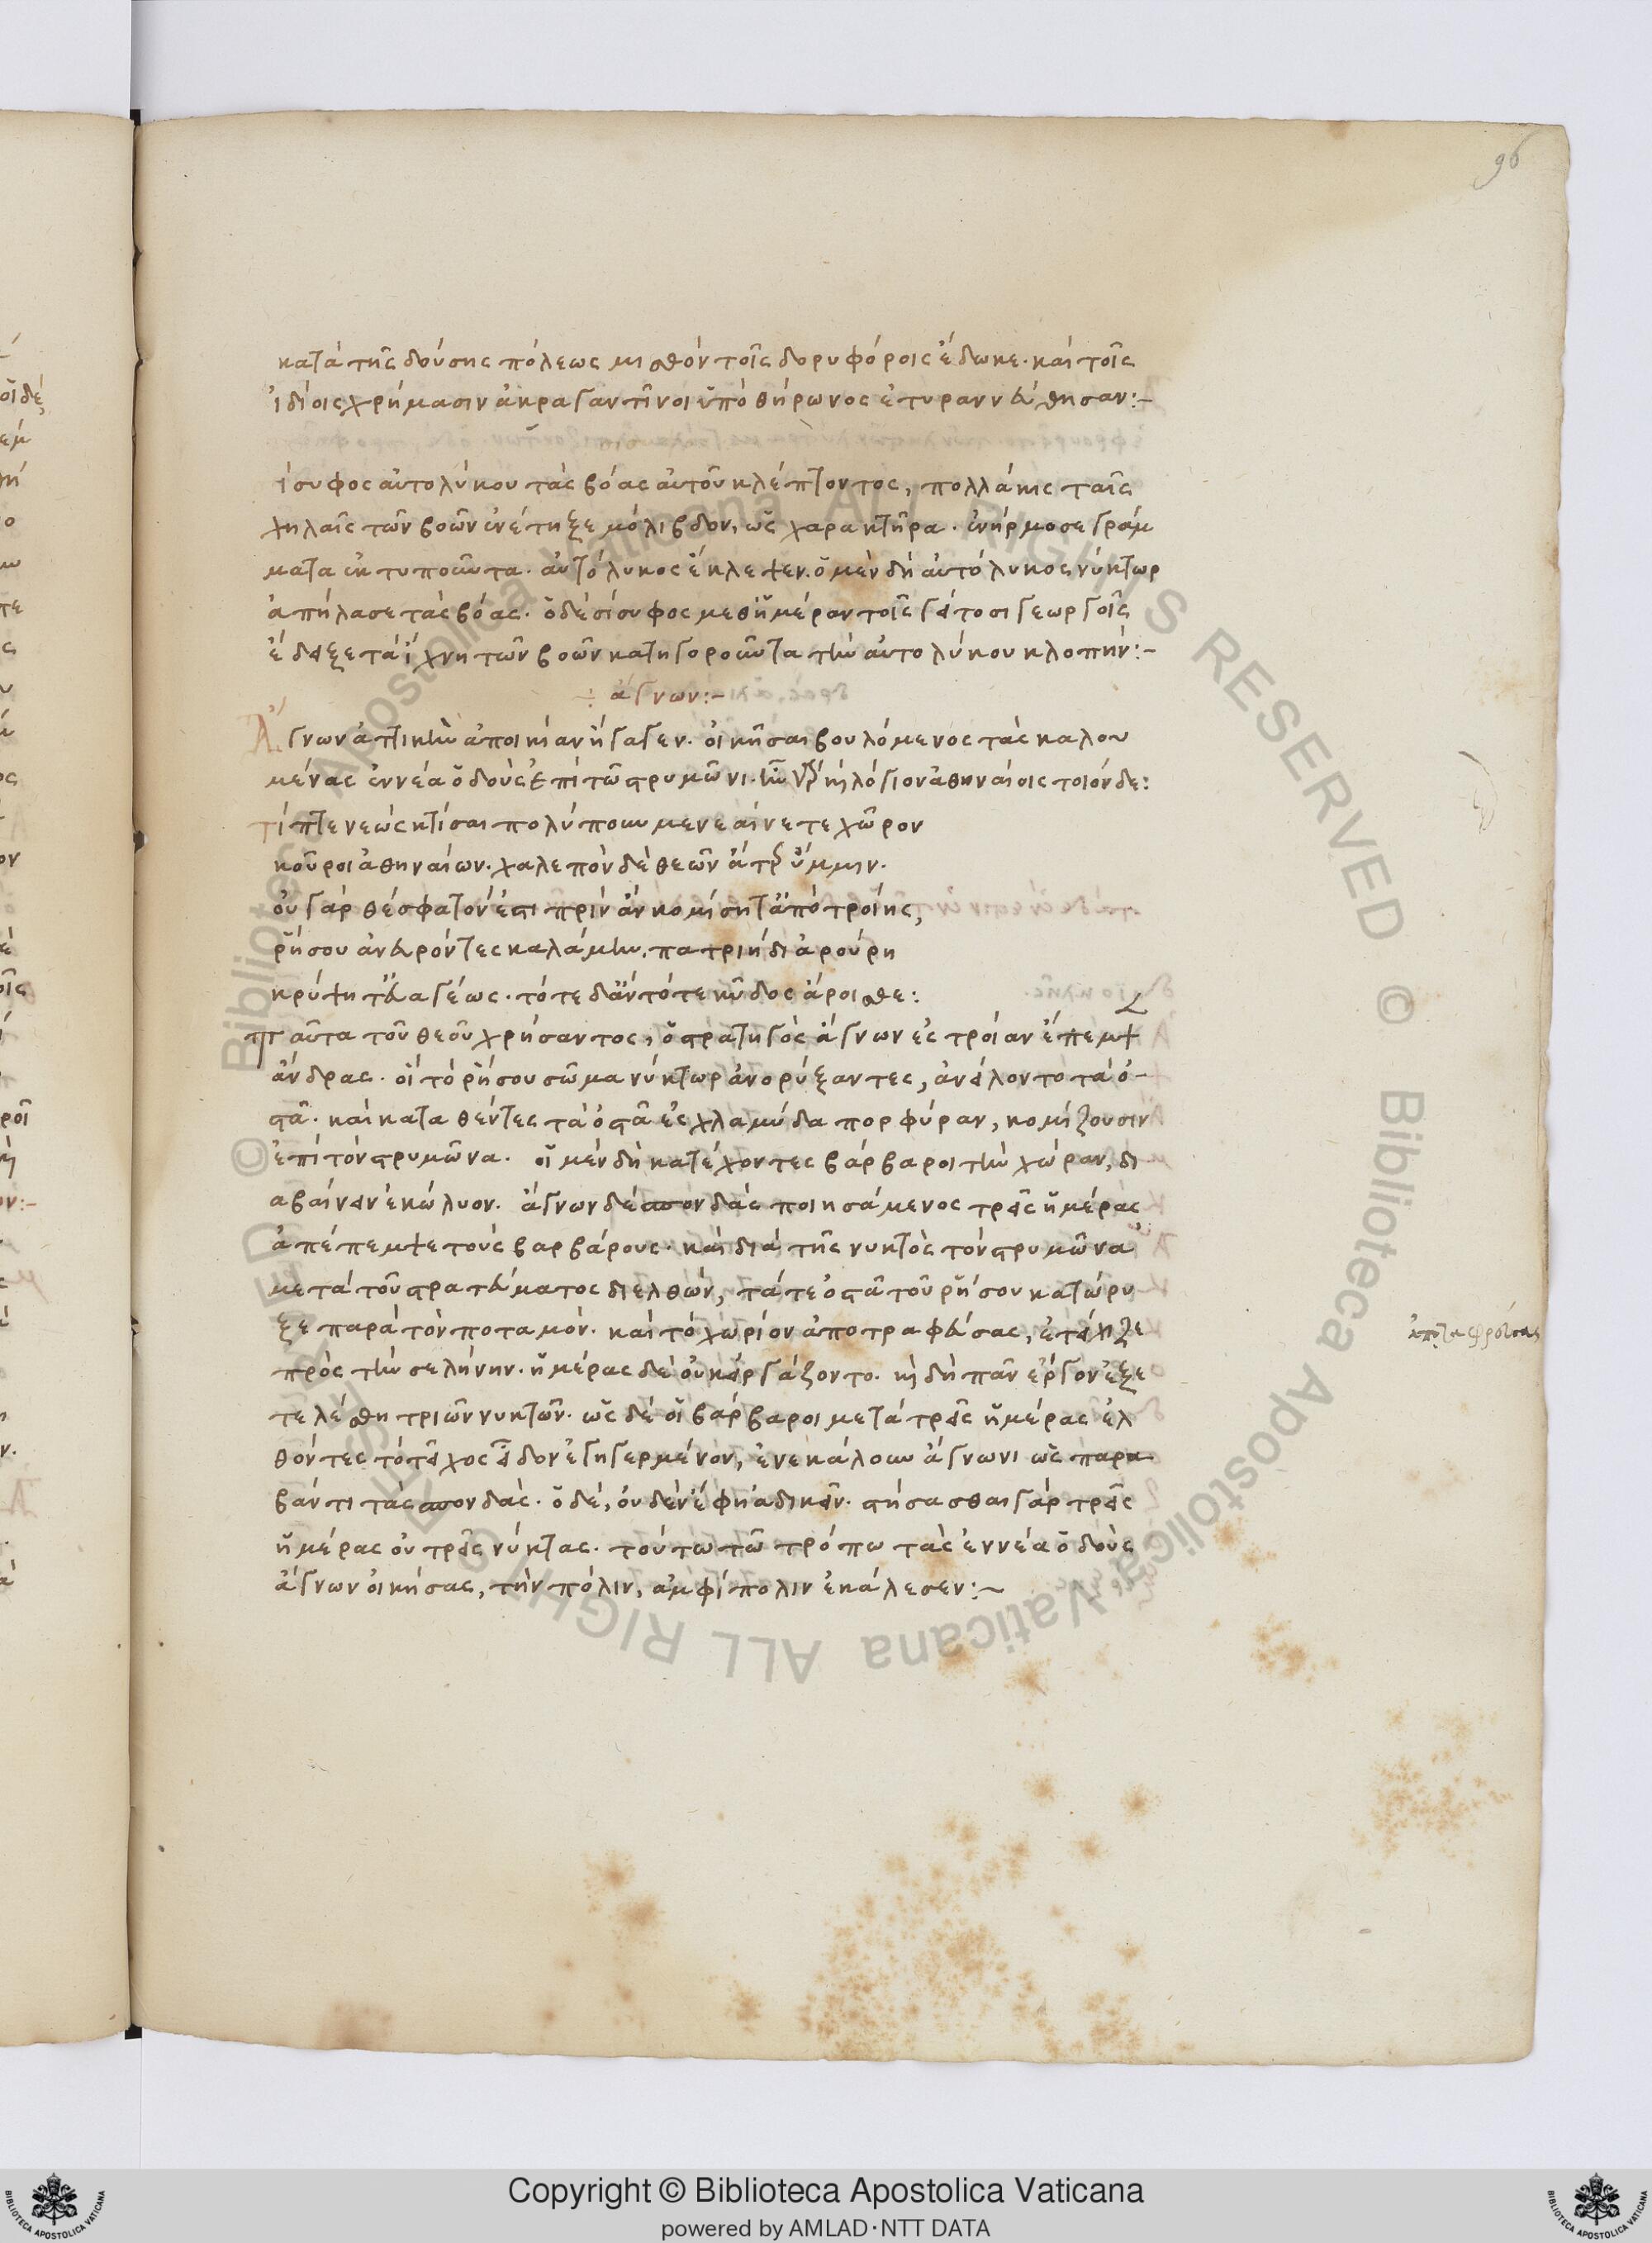 96
κατὰ τῆς δούσης πόλεως μισθὸν τοῖς δορυφόροις ἔδωκε. καὶ τοῖς
ἰδίοις χρήμασιν ἀκραγαντῖνοι ὑπὸ θήρωνος ἐτυραννεύθησαν:–
ίσυφος αὐτολύκου τὰς βόας αὐτοῦ κλέπτοντος, πολλάκις ταῖς
χηλαῖς τῶν βοῶν ἐνέτηξε μόλιβδον, ὡς χαρακτῆρα. ἐνήρμοσε γράμ
ματα ἐκτυποῦντα. αὐτόλυκος ἔκλεψεν. ὁ μὲν δὴ αὐτόλυκος νύκτωρ
ἀπήλασε τὰς βόας. ὁ δὲ σίσυφος μεθ' ἡμέραν τοῖς γείτοσι γεωργοῖς
ἔδειξε τὰ ἴχνη τῶν βοῶν κατηγοροῦντα τὴν αὐτολύκου κλοπήν:–
÷ ἅγνων:–
Ἅγνων ἀττικὴν ἀποικίαν ἤγαγεν. οἰκῆσαι βουλόμενος τὰς καλου
μένας ἐννέα ὁδοὺς ἐπὶ τῷ στρυμῶνι. ἦν γὰρ καὶ λόγιον ἀθηναίοις τοιόνδε:
τίπτε νεῶς κτίσαι πολύπουν μενεαίνετε χῶρον
κοῦροι ἀθηναίων. χαλεπὸν δὲ θεῶν ἄτερ ὔμμιν.
οὐ γὰρ θέσφατόν ἐστι πρὶν ἂν κομίσητ' ἀπὸ τροίης,
ῥήσου ἀνευρόντες καλάμην. πατρίη δὶ ἀρούρη
κρύψητ' εὐαγέως. τότε δ' ἂν τότε κῦδος ἄροισθε:
ταῦτα τοῦ θεοῦ χρήσαντος, ὁ στρατηγὸς ἅγνων ἐς τροίαν ἔπεμψ
ἄνδρας. οἳ τὸ ῥήσου σῶμα νύκτωρ ἀνορύξαντες, ἀνείλοντο τὰ ὀ–
στᾶ. καὶ καταθέντες τὰ ὀστᾶ ἐς χλαμύδα πορφύραν, κομίζουσιν
ἐπὶ τὸν στρυμῶνα. οἱ μὲν δὴ κατέχοντες βάρβαροι τὴν χώραν, δι
αβαίνειν ἐκώλυον. ἅγνων δὲ σπονδὰς ποιησάμενος τρεῖς ἡμέρας
ἀπέπεμψε τοὺς βαρβάρους. καὶ διὰ τῆς νυκτὸς τὸν στρυμῶνα
μετὰ τοῦ στρατεύματος διελθών, τά τε ὀστᾶ τοῦ ῥήσου κατώρυ
ξε παρὰ τὸν ποταμόν. καὶ τὸ χωρίον ἀποτραφεύσας, ἐτείχιζε
πρὸς τὴν σελήνην. ἡμέρας δὲ οὐκ εἰργάζοντο. καὶ δὴ πᾶν ἔργον ἐξε
τελέσθη τριῶν νυκτῶν. ὡς δὲ οἱ βάρβαροι μετὰ τρεῖς ἡμέρας ἐλ
θόντες τὸ τεῖχος εἶδον ἐγηγερμένον, ἐνεκάλουν ἅγνωνι ὡς παρα
βάντι τὰς σπονδάς. ὁ δέ, οὐδὲν ἔφη ἀδικεῖν. στήσασθαι γὰρ τρεῖς
ἡμέρας οὐ τρεῖς νύκτας. τούτω τῶ τρόπω τὰς ἐννέα ὁδοὺς
ἅγνων οἰκήσας, τὴν πόλιν, ἀμφίπολιν ἐκάλεσεν:~
Copyright © Biblioteca Apostolica Vaticana
powered by AMLAD·NTT DATA